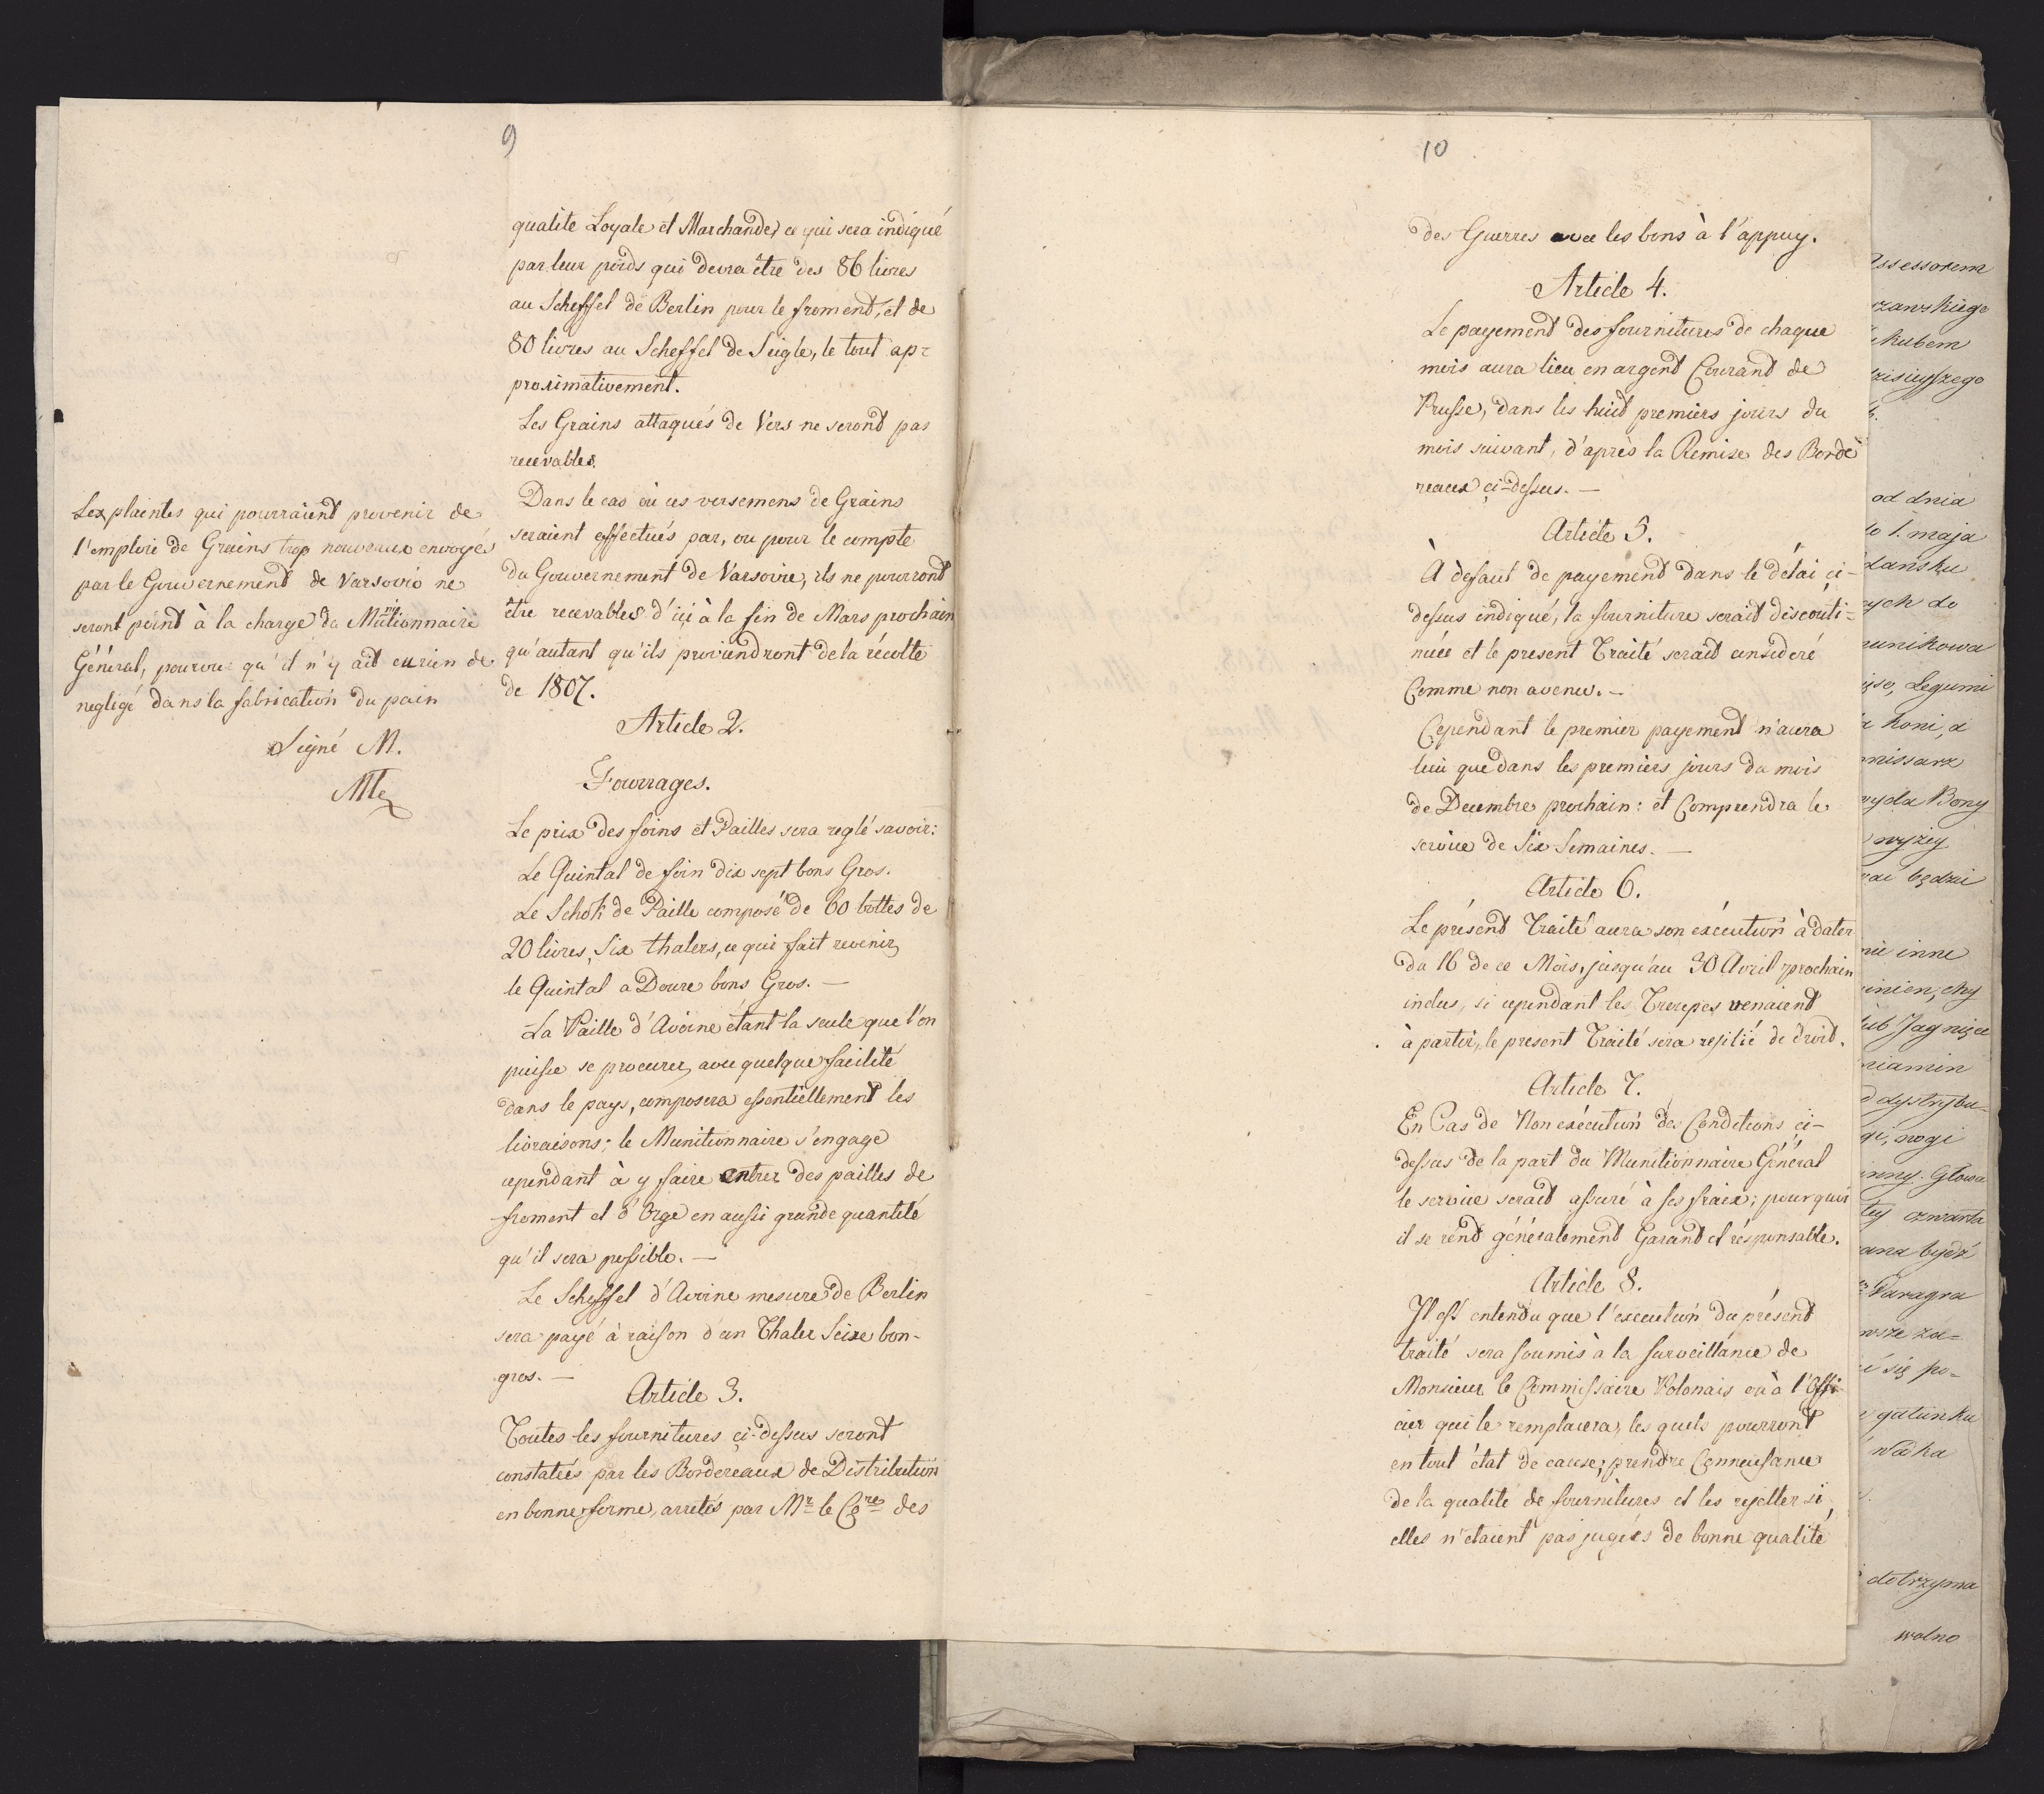 9
qualite Loyale et Marchande, ce qui sera indiqué
par leur poids qui devra être des 86 livres
au Scheffel de Berlin pour le froment, et de
80 livres au Scheffel de Seigle, le tout ap=
proximativement.
Les Grains attaqués de Vers ne seront pas
recevables.
Dans le cas où ces versemens de Grains
seraient efféctués par, ou pour le compte
du Gouvernement de Varsovie, ils ne pourront
être recevables d'içi à la fin de Mars prochain
qu'autant qu'ils proviendront de la récolte
de 1807.
Les plaintes qui pourraient provenir de
l'emploi de Grains trop nouveaux envoyés
par le Gouvernement de Varsovie ne
seront point à la charge du Munitionnaire
Général, pourvu qu'il n'y ait eu rien de
negligé dans la fabrication du pain
Signé M.
Article 2.
Fourrages.
Le prix des foins et Pailles sera reglé savoir:
Le Quintal de foin dix sept bons Gros.
Le Schok de Paille composé de 60 bottes de
20 livres, Six thalers, ce qui fait revenir
le Quintal a Douze bons Gros. —
La Paille d'Avoine étant la seule que l'on
puisse se procurer avec quelque facilité
dans le pays, composera essentiellement les
livraisons; le Munitionnaire s'engage
cependant à y faire entrer des pailles de
froment et d'Orge en aussi grande quantité
qu'il sera possible. —
Le Scheffel d'Avoine mesure de Berlin
sera payé à raison d'un Thaler Seize bon-
gros. —
Article 3.
Toutes les fournitures çi-dessus seront
constatées par les Bordereaux de Distribution
en bonne forme, arretés par Mr le Cre des
10
des Guerres avec les bons à l'appuy.
Article 4.
Le payement des fournitures de chaque
mois aura lieu en argent Courand de
Prusse, dans les huit premiers jours du
mois suivant, d'après la Remise des Borde
reaux çi-dessus. —
Article 5.
À defaut de payement dans le délai çi-
dessus indiqué, la fourniture serait discouti=
nuée et le present Traité serait consideré
Comme non avenu. —
Cependant le premier payement n'aura
lieu que dans les premiers jours du mois
de Decembre prochain: et Comprendra le
service de Six Semaines. —
Article 6.
Le présent Traité aura son exécution à dater
du 16 de ce Mois, jusqu'au 30 Avril prochain
inclus, si cependant les Troupes venaient
à partir, le present Traité sera resilié de droit.
Article 7.
En Cas de Non exécution des Conditions çi-
dessus de la part du Munitionnaire Général
le service serait assuré à ses fraix; pourquoi
il se rend généralement Garand et résponsable.
Article 8.
Il est entendu que l'execution du présent
traité sera soumis à la surveillance de
Monsieur le Commissaire Polonais ou à l'Offi-
cier qui le remplacera, les quels pourront
en tout état de cause, prendre Connaissance
de la qualité de fournitures et les rejetter si,
elles n'etaient pas jugées de bonne qualité
ssessorem
czawskiego
kubem
dzisieyszego
od dnia
do 1. maja
dansku
ych do
munikowa
Legumi
koni, a
missarz
wyda Bony
wyżey
będzie
inne
lub Jagnięce
niamin
dystrybu=
nogi
inny. Głowa
czwarta
bydź
Paragra
wsze za=
się po=
gatunku
wódka
dotrzyma
wolno